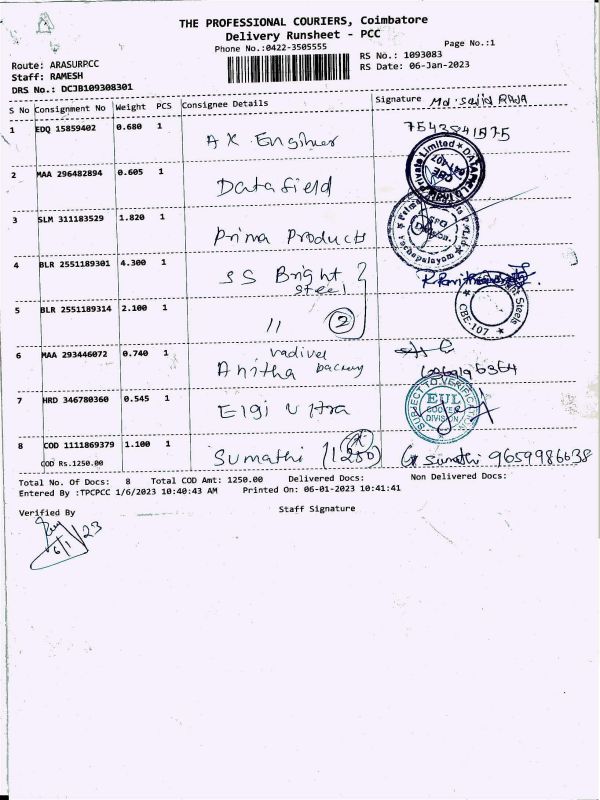 THE PROFESSIONAL COURIERS, Coimbatore
Delivery Runsheet - PCC
Phone No.:0422-3505555
Page No.:1
Route: ARASURPCC
Staff: RAMESH
DRS No.: DCJB109308301
RS No.: 1093083
RS Date: 06-Jan-2023
S No Consignment No Weight PCS Consignee Details Signature Md. Sajid RAJA
1 EDQ 15859402 0.680 1 A K Engineer
2 MAA 296482894 0.605 1 Data field
3 SLM 311183529 1.820 1 Prima Products
4 BLR 2551189301 4.300 1 SS Bright steel
5 BLR 2551189314 2.100 1 11 2
Steels
CBE-107
6 MAA 293446072 0.740 1 vadivel
Anitha
7 HRD 346780360 0.545 1 Elgi Ultra
SUBJECT TO VERIFICATION
EUL
DIVISION
8 COD 1111869379 1.100 1 Sumathi 1250 Sumathi 9659986638
COD Rs.1250.00
Total No. Of Docs: 8 Total COD Amt: 1250.00 Delivered Docs: Non Delivered Docs:
Entered By :TPCPCC 1/6/2023 10:40:43 AM Printed On: 06-01-2023 10:41:41
Verified By Staff Signature
6/1/23